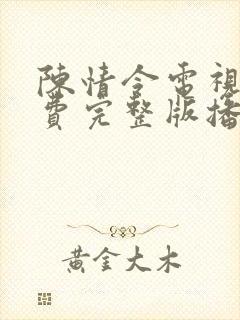 陳情令電視
費完整版播
黃金大木